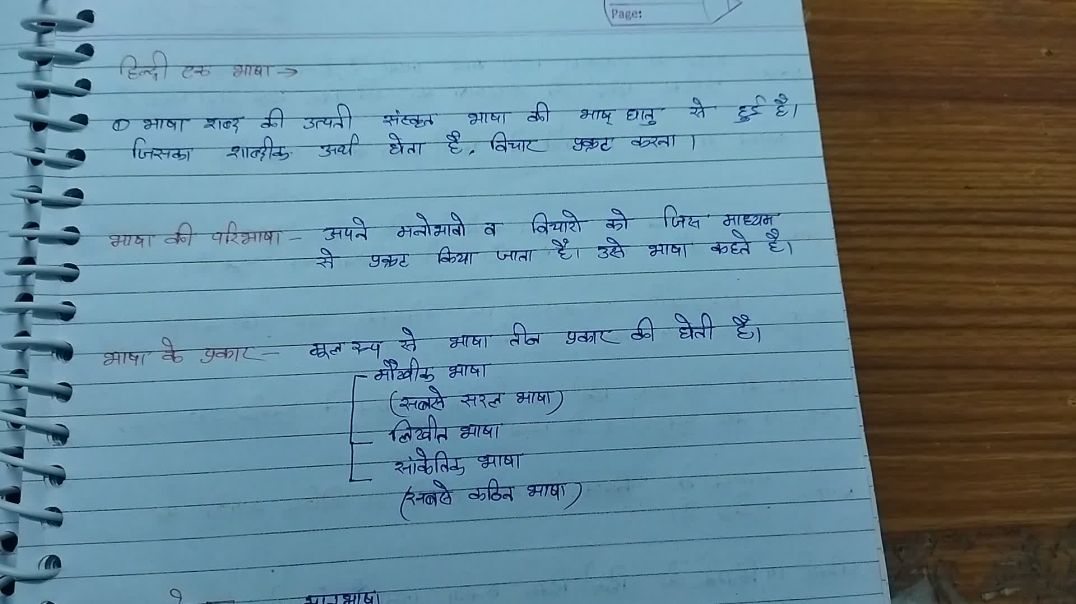 Page:
हिन्दी एक भाषा →
① भाषा शब्द की उत्पती संस्कृत भाषा की भाष् धातु से हुई है।
जिसका शाब्दीक अर्थ होता है, विचार प्रकट करना ।
भाषा की परिभाषा – अपने मनोभावो व विचारो को जिस माध्यम
से प्रकट किया जाता है। उसे भाषा कहते है।
भाषा के प्रकार – मूल रूप से भाषा तीन प्रकार की होती है।
मौखीक भाषा
(सबसे सरल भाषा)
लिखीत भाषा
सांकेतिक भाषा
(सबसे कठिन भाषा)